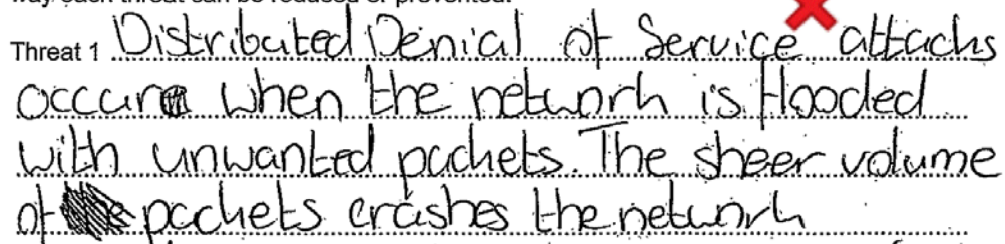 way each threat can be reduced or prevented.
Threat 1 Distributed Denial of Service attacks
occur when the network is flooded
with unwanted packets. The sheer volume
of packets crashes the network